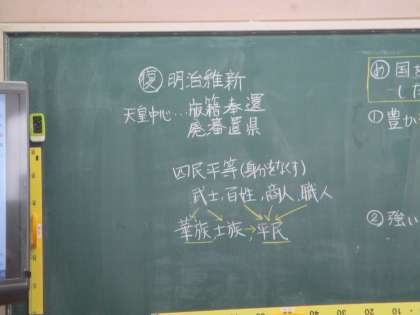 復 明治維新
天皇中心…版籍奉還
廃藩置県
四民平等(身分をなくす)
武士,百姓,商人,職人
華族,士族→平民
め 国を
した
①豊か
②強い